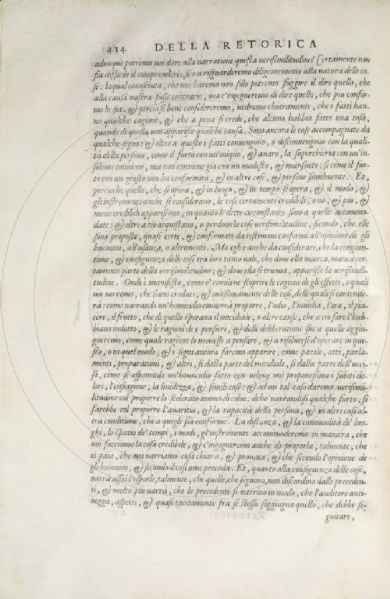 434. DELLA RETORICA
adunque potremo noi dare alla narratione questa uerisimilitudine? Certamente non
fia difficile il comprenderlo, se riguarderemo diligentemente alla natura delle co
se: la qual conosciuta, che noi haremo non solo potremo fuggire il dire quello, che
alla causa nostra fusse contrario, ma c'ingegneremo di dire quello, che piu confor
me le sia, & percio se bene considereremo, uedremo chiaramente, che i fatti han
no qualche cagione, & che a pena si crede, che alcuno habbia fatto una cosa,
quando di quella non apparisce qualche causa. Sono ancora le cose accompagnate da
qualche segno: & oltre a questo i fatti conuengono, o disconuengono con la quali
tà della persona, come il furto con un auaro, la superchieria con un in
solente conuiene, ma non conuiene gia con un modesto, & mansueto; si come il fur
to con un giusto non ha conformità, & in altre cose, & persone similmente. Et,
percioche quello, che si opera, & in luogo, & in tempo si opera, & il modo, &
gli instromenti anche si considerano, le cose certamente credibili, o no, & piu, &
meno credibili appariscono, in quanto le dette circunstanze sono a quelle accommo-
date: & oltre a ciò acquistano, o perdono le cose uerisimilitudine, secondo, che elle
sono proposte, quasi certe, & confirmate da testimoni conformi all'opinione de gli
huomini, all'usanza, o altrimenti. Ma egli è anche da considerare, che la congiuntio
ne, & conseguenza delle cose tra loro tanto uale, che doue ella manca, manca cer-
tamente parte della uerisimilitudine; & doue ella si truoua, apparisce la uerisimili-
tudine. Onde è manifesto, come e' conuiene scoprire le cagioni de gli effetti, i quali
noi uorremo, che siano creduti, & massimamente delle cose, delle quali si contende-
rà come narrando un homicidio conuerrà proporre, l'odio, l'inuidia, l'ira, il pia-
cere, il frutto, che di quello sperana il micidiale, o altre cause, che a ciò fare l'hab
biano indotto, & le ragioni de i pensieri, & delle deliberationi sue a quelle aggiu
gneremo, come quale ragione lo mouesse a pensare, & a risoluersi d'operare in que
sto, o in quel modo, & i segni ancora faremo apparire, come parole, atti, parla-
menti, preparationi, & altri, si dalla parte del micidiale, si dalla parte dell'ucci-
so, come se esponendo un homicidio fatto con ueleno
ri, l'enfiagione, la liuidezza, & simili cose: & ad un tal caso daremo uerisimi-
litudine col proporre lo scelerato animo di colui che narrandosi qualche furto, si
farebbe col proporre l'auaritia, & la rapacità della persona, & in altri casi al-
tra conditione, che a quegli sia conforme. La distanza, & la commodità de' luo-
ghi, lo spatio de' tempi, i modi, gl'instrumenti accommoderemo in maniera, che
noi facciamo la cosa credibile, & c'ingegneremo anche di proporla, talmente, che
ei paia, che noi narriamo cosa chiara, & prouata, & che secondo l'opinione de
gli huomini, & secondo il costume proceda. Et, quanto alla conseguenza delle cose,
narrà assai l'esporle, talmente, che quelle, che seguono, non discordino dalle preceden-
ti, & molto piu narrà, che le precedenti si narrino in modo, che l'auditore anti-
uegga, aspetti, & quasi tacitamente fra se stesso soggiunga quello, che debbe se-
guitare,